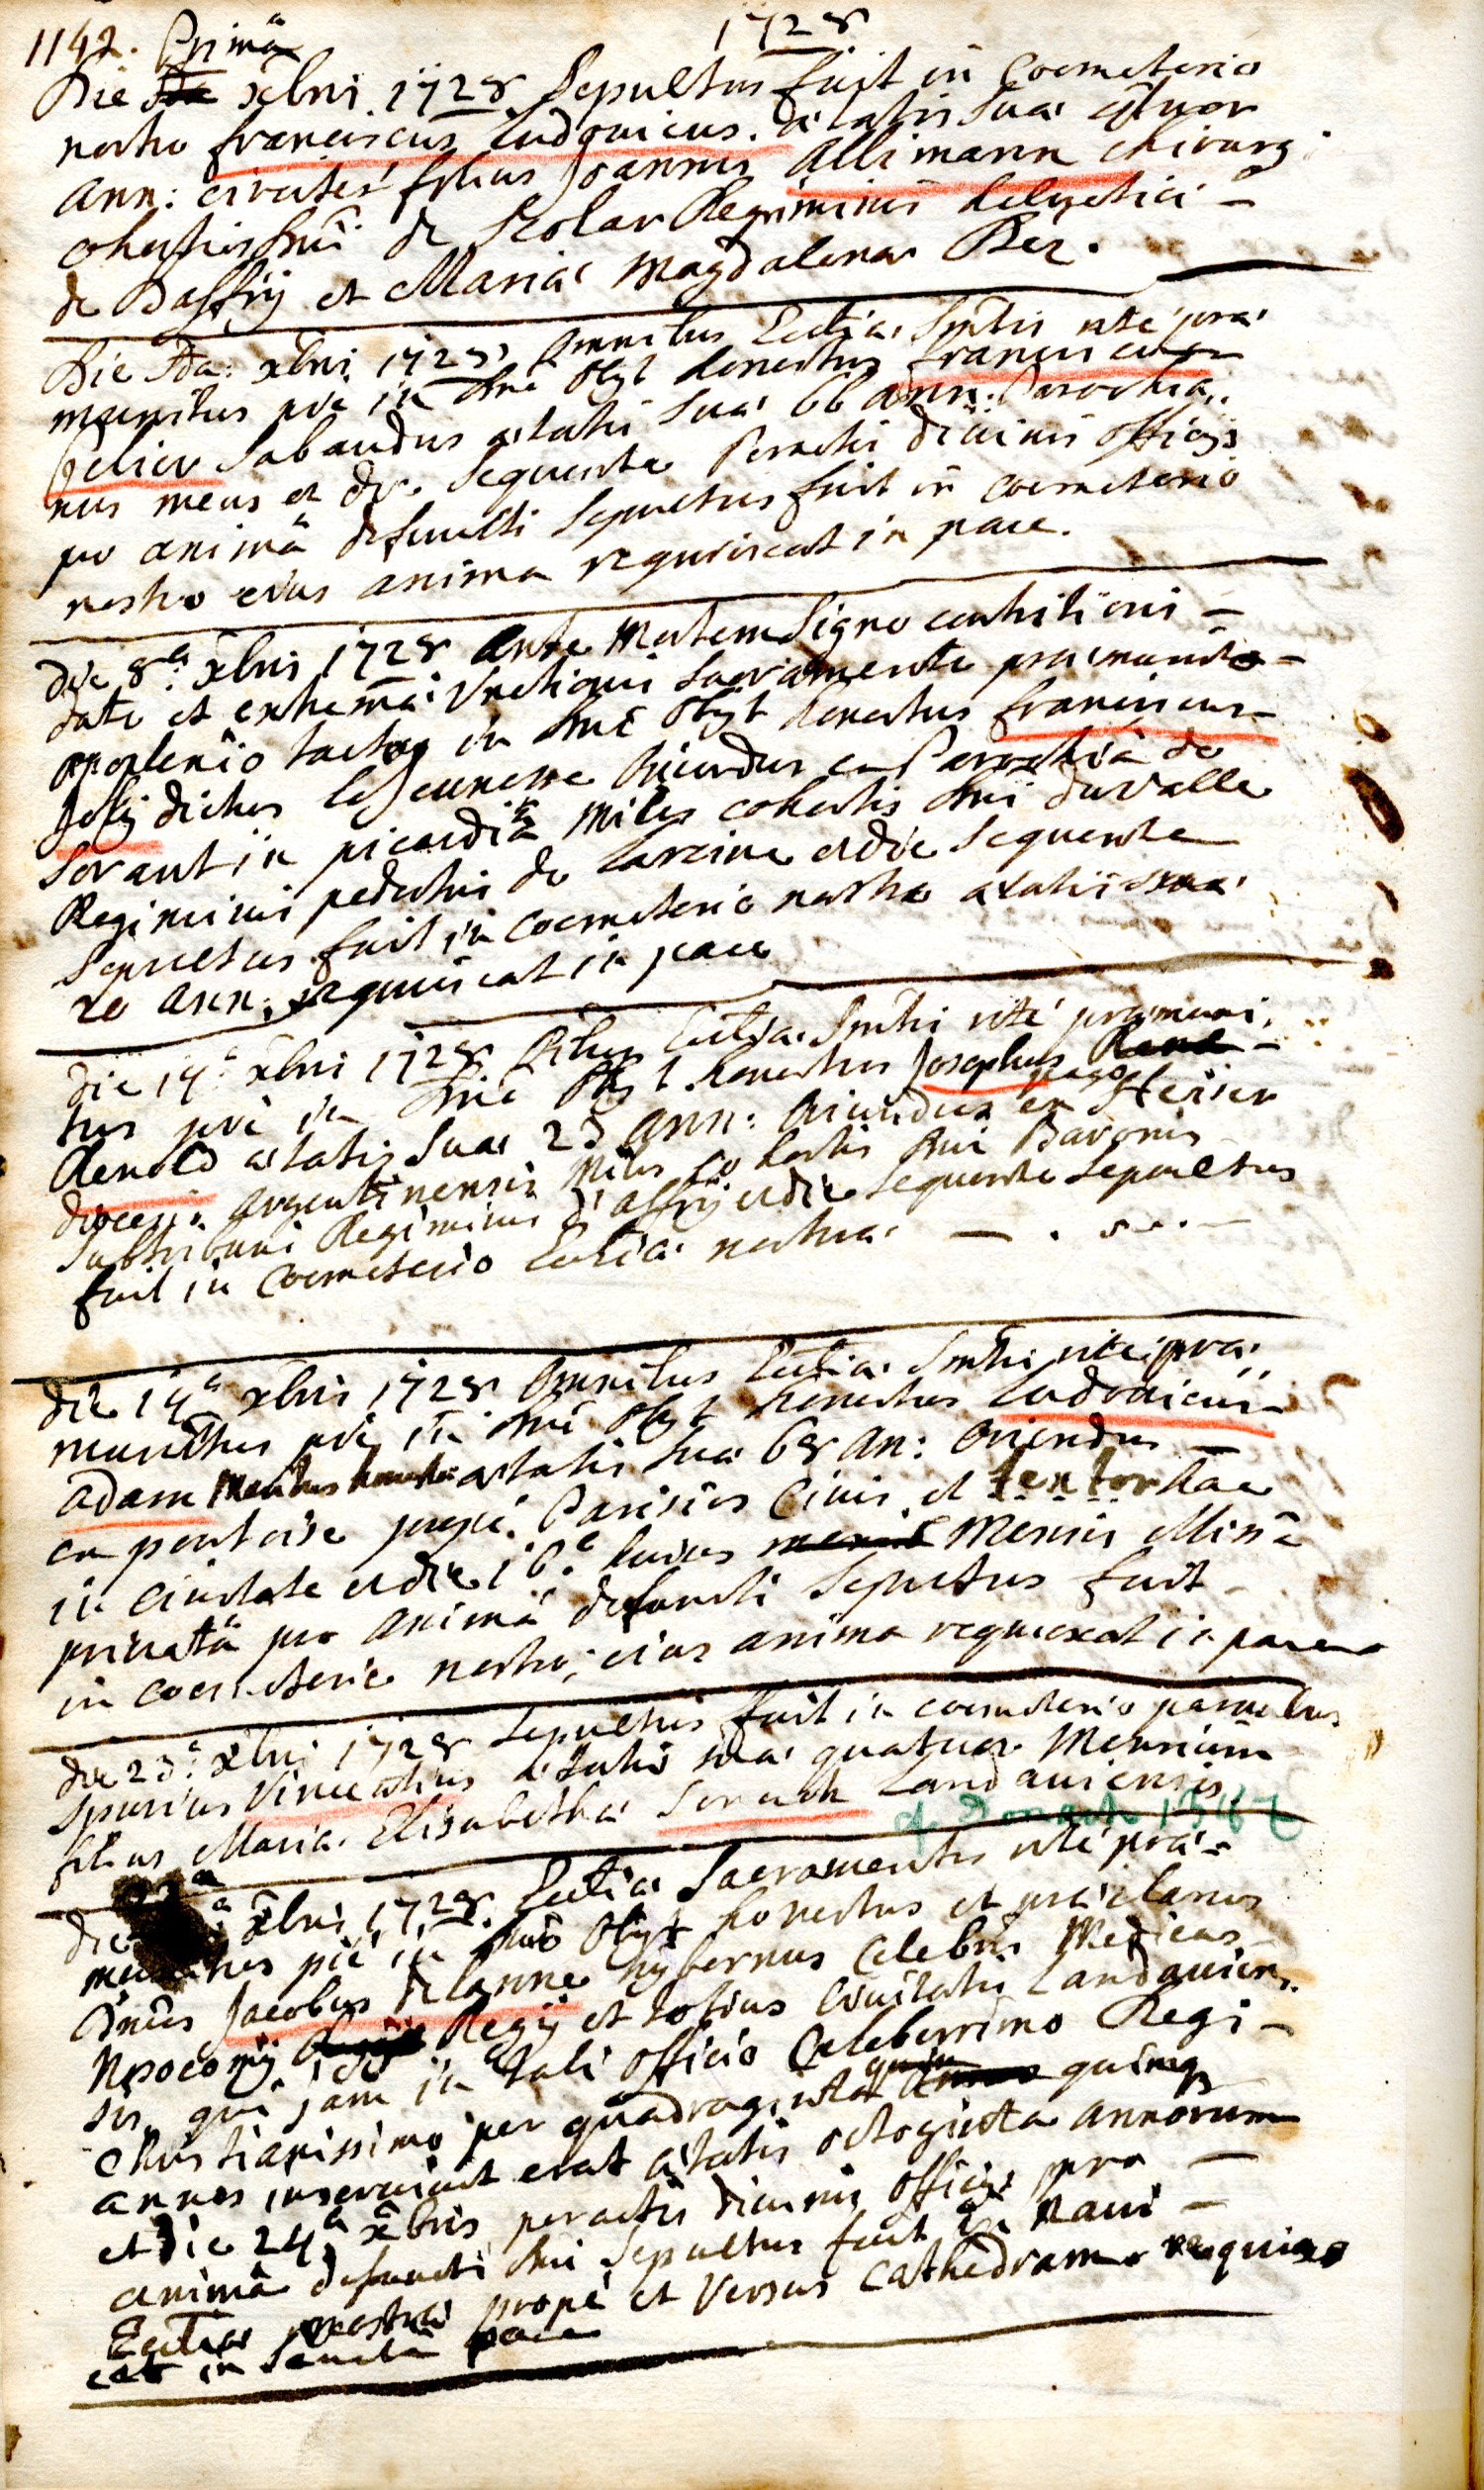 1142. Primâ 1728
Die xbris 1728 Sepultus fuit in Coemeterio
nostro franciscus Ludovicus. ætatis suæ
ann: circiter filius Joannis Allimann chirurgi
cohortis Dni de Scolar Regiminis helvetici -
de Daffrÿ et Mariæ Magdalenæ Bez.
Die xbris 1728 omnibus Eccliæ Smtis rite præ
munitus piè in Dno obÿt honestus franciscus
felier Sabaudus ætatis suæ 66 ann: Parochia
nus meus et die sequente Peractis divinis officÿs
pro animâ defuncti sepultus fuit in coemeterio
nostro eius anima requiescat in pace.
die 8ª xbris 1728 ante Mortem Signo contritionis
dato et extremæ Unctionis Sacramento præmunito
in Dno obÿt honestus franciscus
Joly dictus leJeunesse oriundus ex Parochiâ de
Sorant in picardiâ Miles cohortis Dni duvalle
Regiminis pedestris de Laxeine et die sequente
Sepultus fuit in Coemeterio nostro ætatis suæ
20 ann: requiescat in pace
die 14ª xbris 1728 Eccliæ Smtis rité præmuni
tus piè in Dno obÿt honestus Josephus
Renold ætatis suæ 23 ann: oriundus ex pago Steiier
dioecesis argentinensis Miles cohortis Dni Baronis
Regiminis d'affrÿ et die sequente Sepultus
fuit in Coemeterio Eccliæ nostræ. —
die 14ª xbris 1728 omnibus Eccliæ Smtis rite præ
munitus piè in Dno obÿt honestus Ludovicus
adam ætatis suæ 68 an: oriundus —
ex pontoise propé Parisios Civis et textor hac
in civitate et die 16ª huius Mensis Missâ
privatâ pro animâ defuncti Sepultus fuit
in coemeterio nostro; eius anima requiescat in pace
die 23ª xbris 1728 Sepultus fuit in coemeterio parvulus
Spurius Vincentius ætatis suæ quatuor Mensium
filius Mariæ Elisabethæ Landaviensis
die xbris 1728. Eccliæ Sacramentis rité præ-
munitus piè in Dno obÿt honestus et præclarus
Dnus Jacobus delanne hÿbernus Celebris Medicus
Nosocomÿ Regÿ et totius Civitatis Landavien
sis qui jam in tali officio Celeberrimo Regi -
Christianissimo per quadraginta quinq
annos inserviat erat ætatis octoginta annorum
et die 24ª xbris peractis divinis officÿs pro —
animâ defuncti Dni Sepultus fuit in navi -
Eccliæ nostræ propé et versus cathedram requies
cat in sanctâ pace